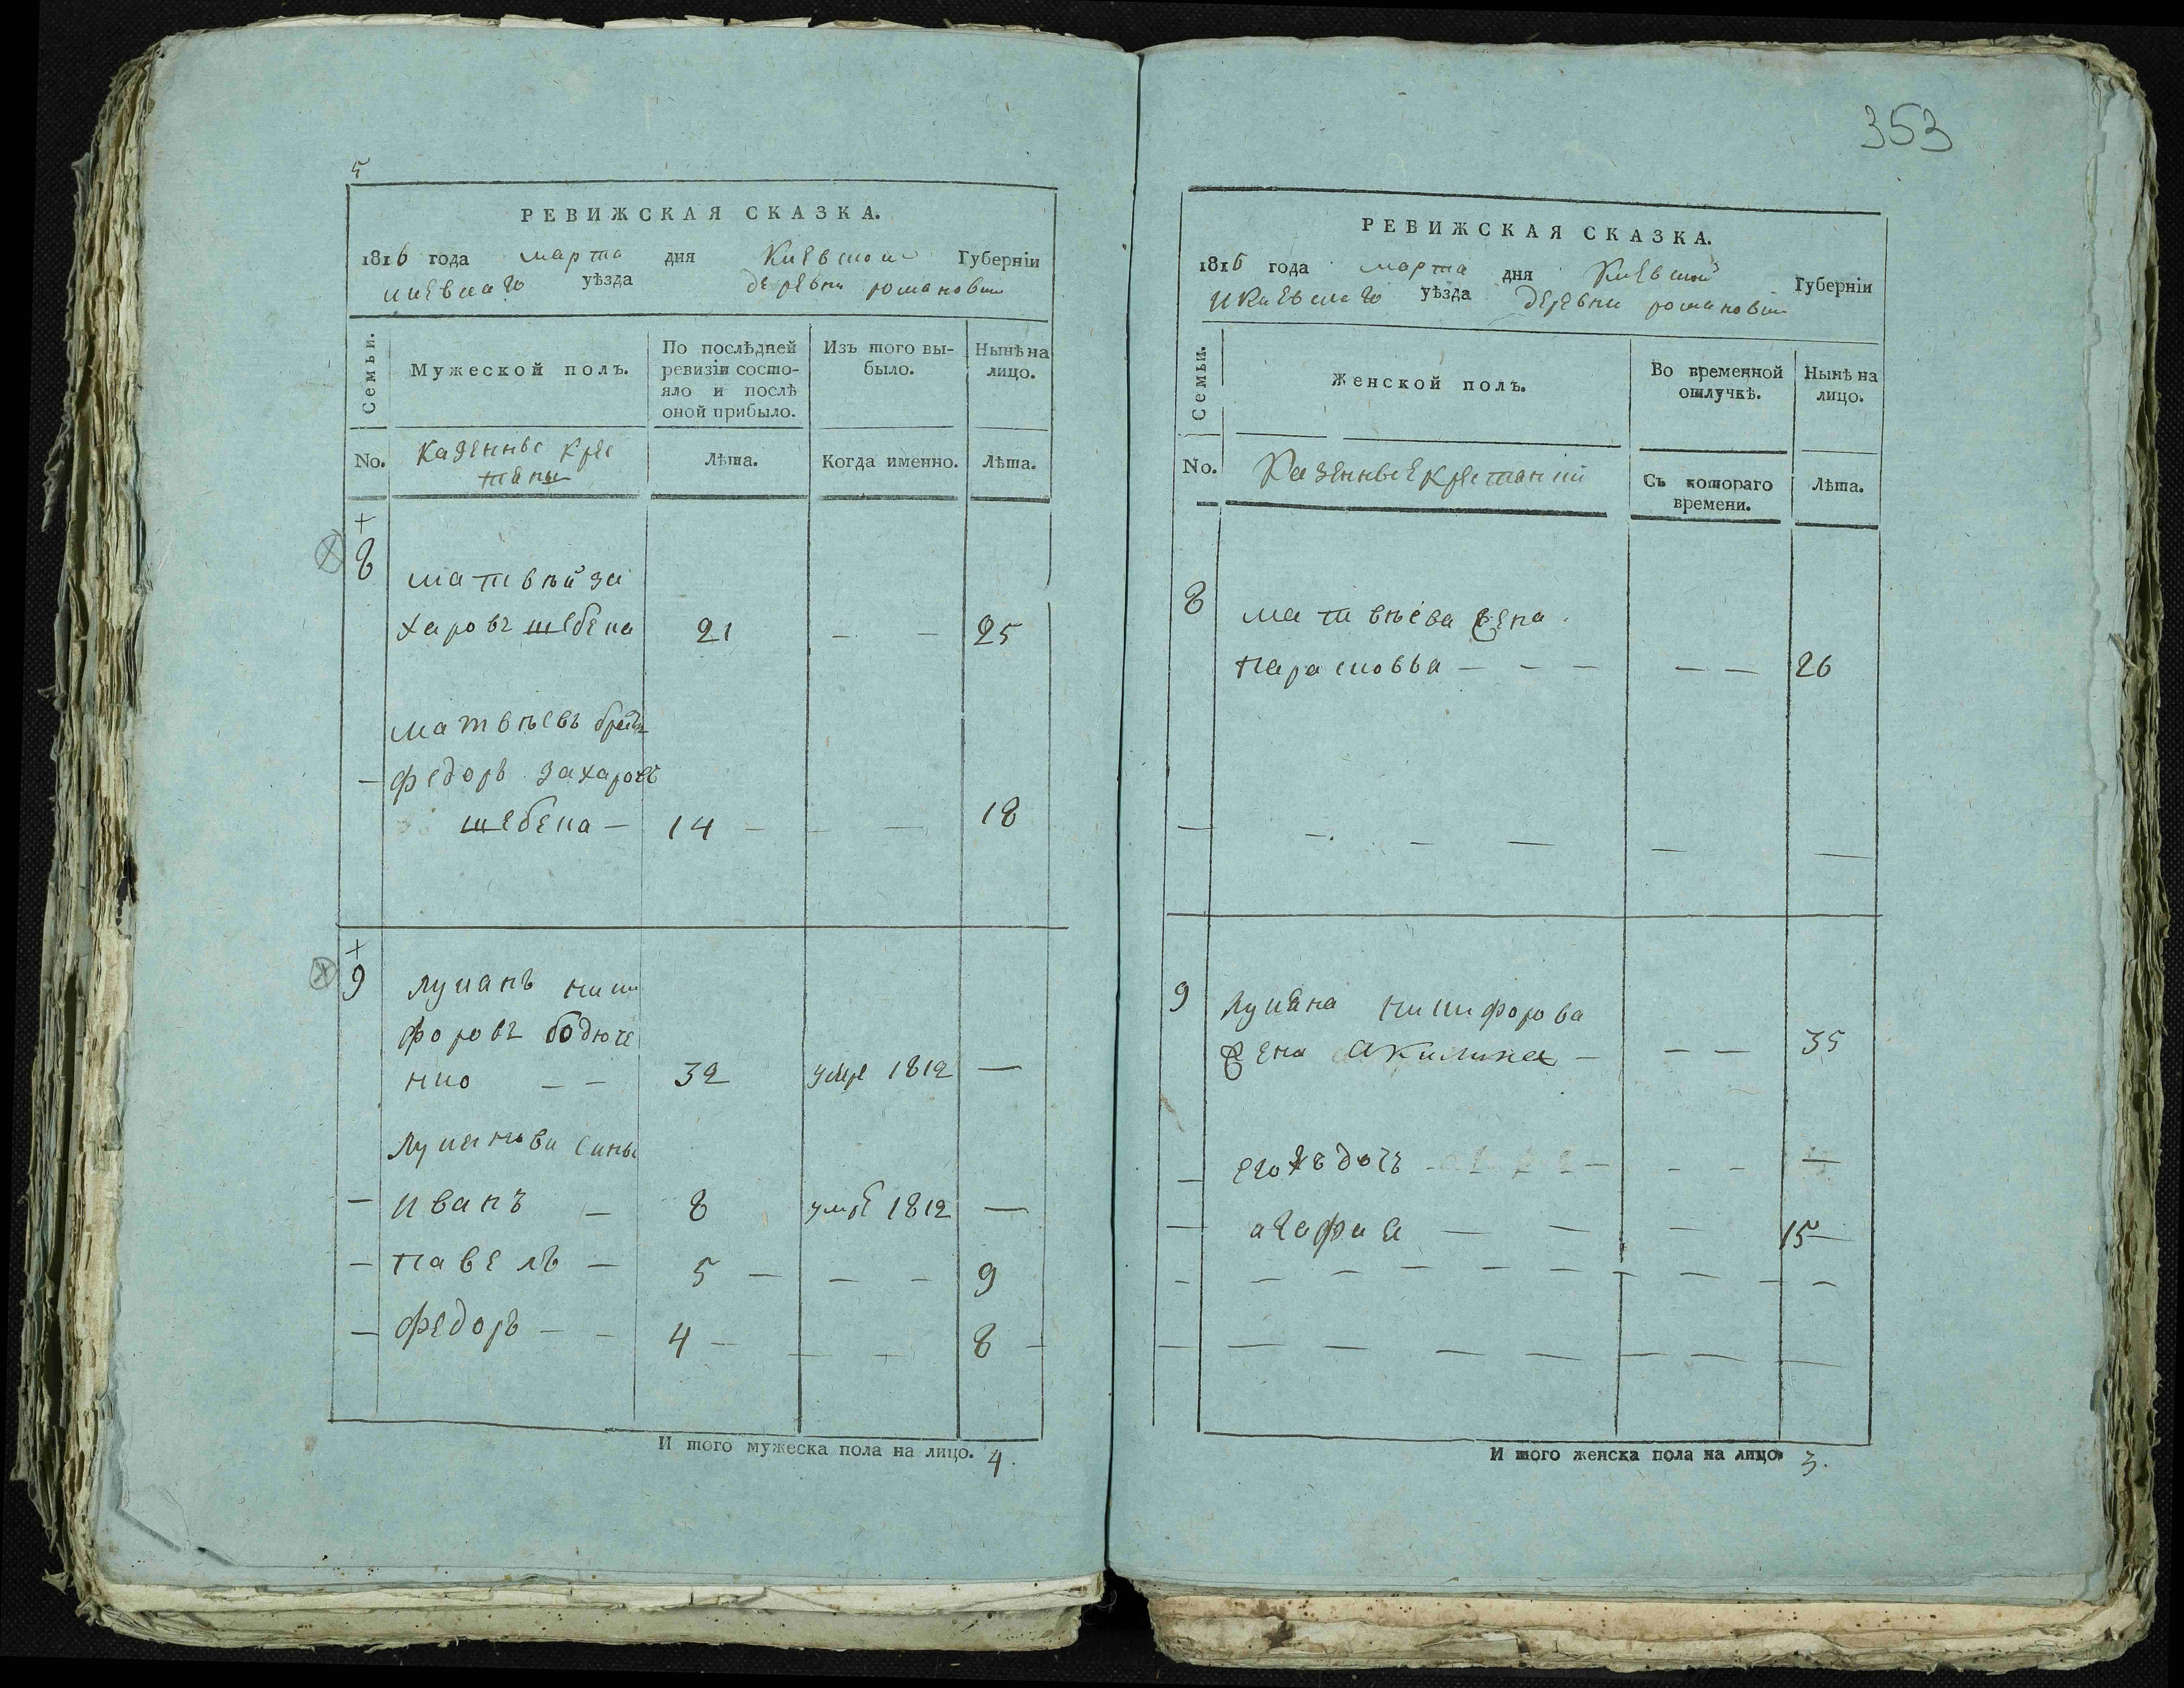 5
РЕВИЖСКАЯ СКАЗКА.
1816 года марта дня Киевской Губерніи
икиевскаго уѣзда деревни романовки
Семьи.
Мужеской полъ.
По послѣдней ревизіи состо-
яло и послѣ
оной прибыло.
Изъ того вы-
было.
Нынѣ на
лицо.
No.
Казенные крес
тяны
Лѣта.
Когда именно.
Лѣта.
+
8 матвѣй за
харовъ шебека 21 — — 25
матвѣевъ братъ
— федоръ захаровъ
шебека — 14 — — — 18
+
9 лукянъ ники
форовъ бодюче
нко — — 32 умре 1812 —
лукянови сины
— иванъ — 8 умре 1812 —
— павелъ — 5 — — — 9
— федоръ — — 4 — — — 8 —
И того мужеска пола на лицо. 4.
353
РЕВИЖСКАЯ СКАЗКА.
1816 года марта дня Киевской Губерніи
икиевскаго уѣзда деревни романовки
Семьи.
Женской полъ.
Во временной
отлучкѣ.
Нынѣ на
лицо.
No.
Казенные крестянки
Съ котораго
времени.
Лѣта.
8 матвѣева жена
парасковья — — — — — 26
— — — — — —
9 лукяна никифорова
жена акилина — — — 35
— егожъ дочъ — — — —
— агафия — — — 15
— — — — — — — — — —
— — — — — — — —
И того женска пола на лицо 3.